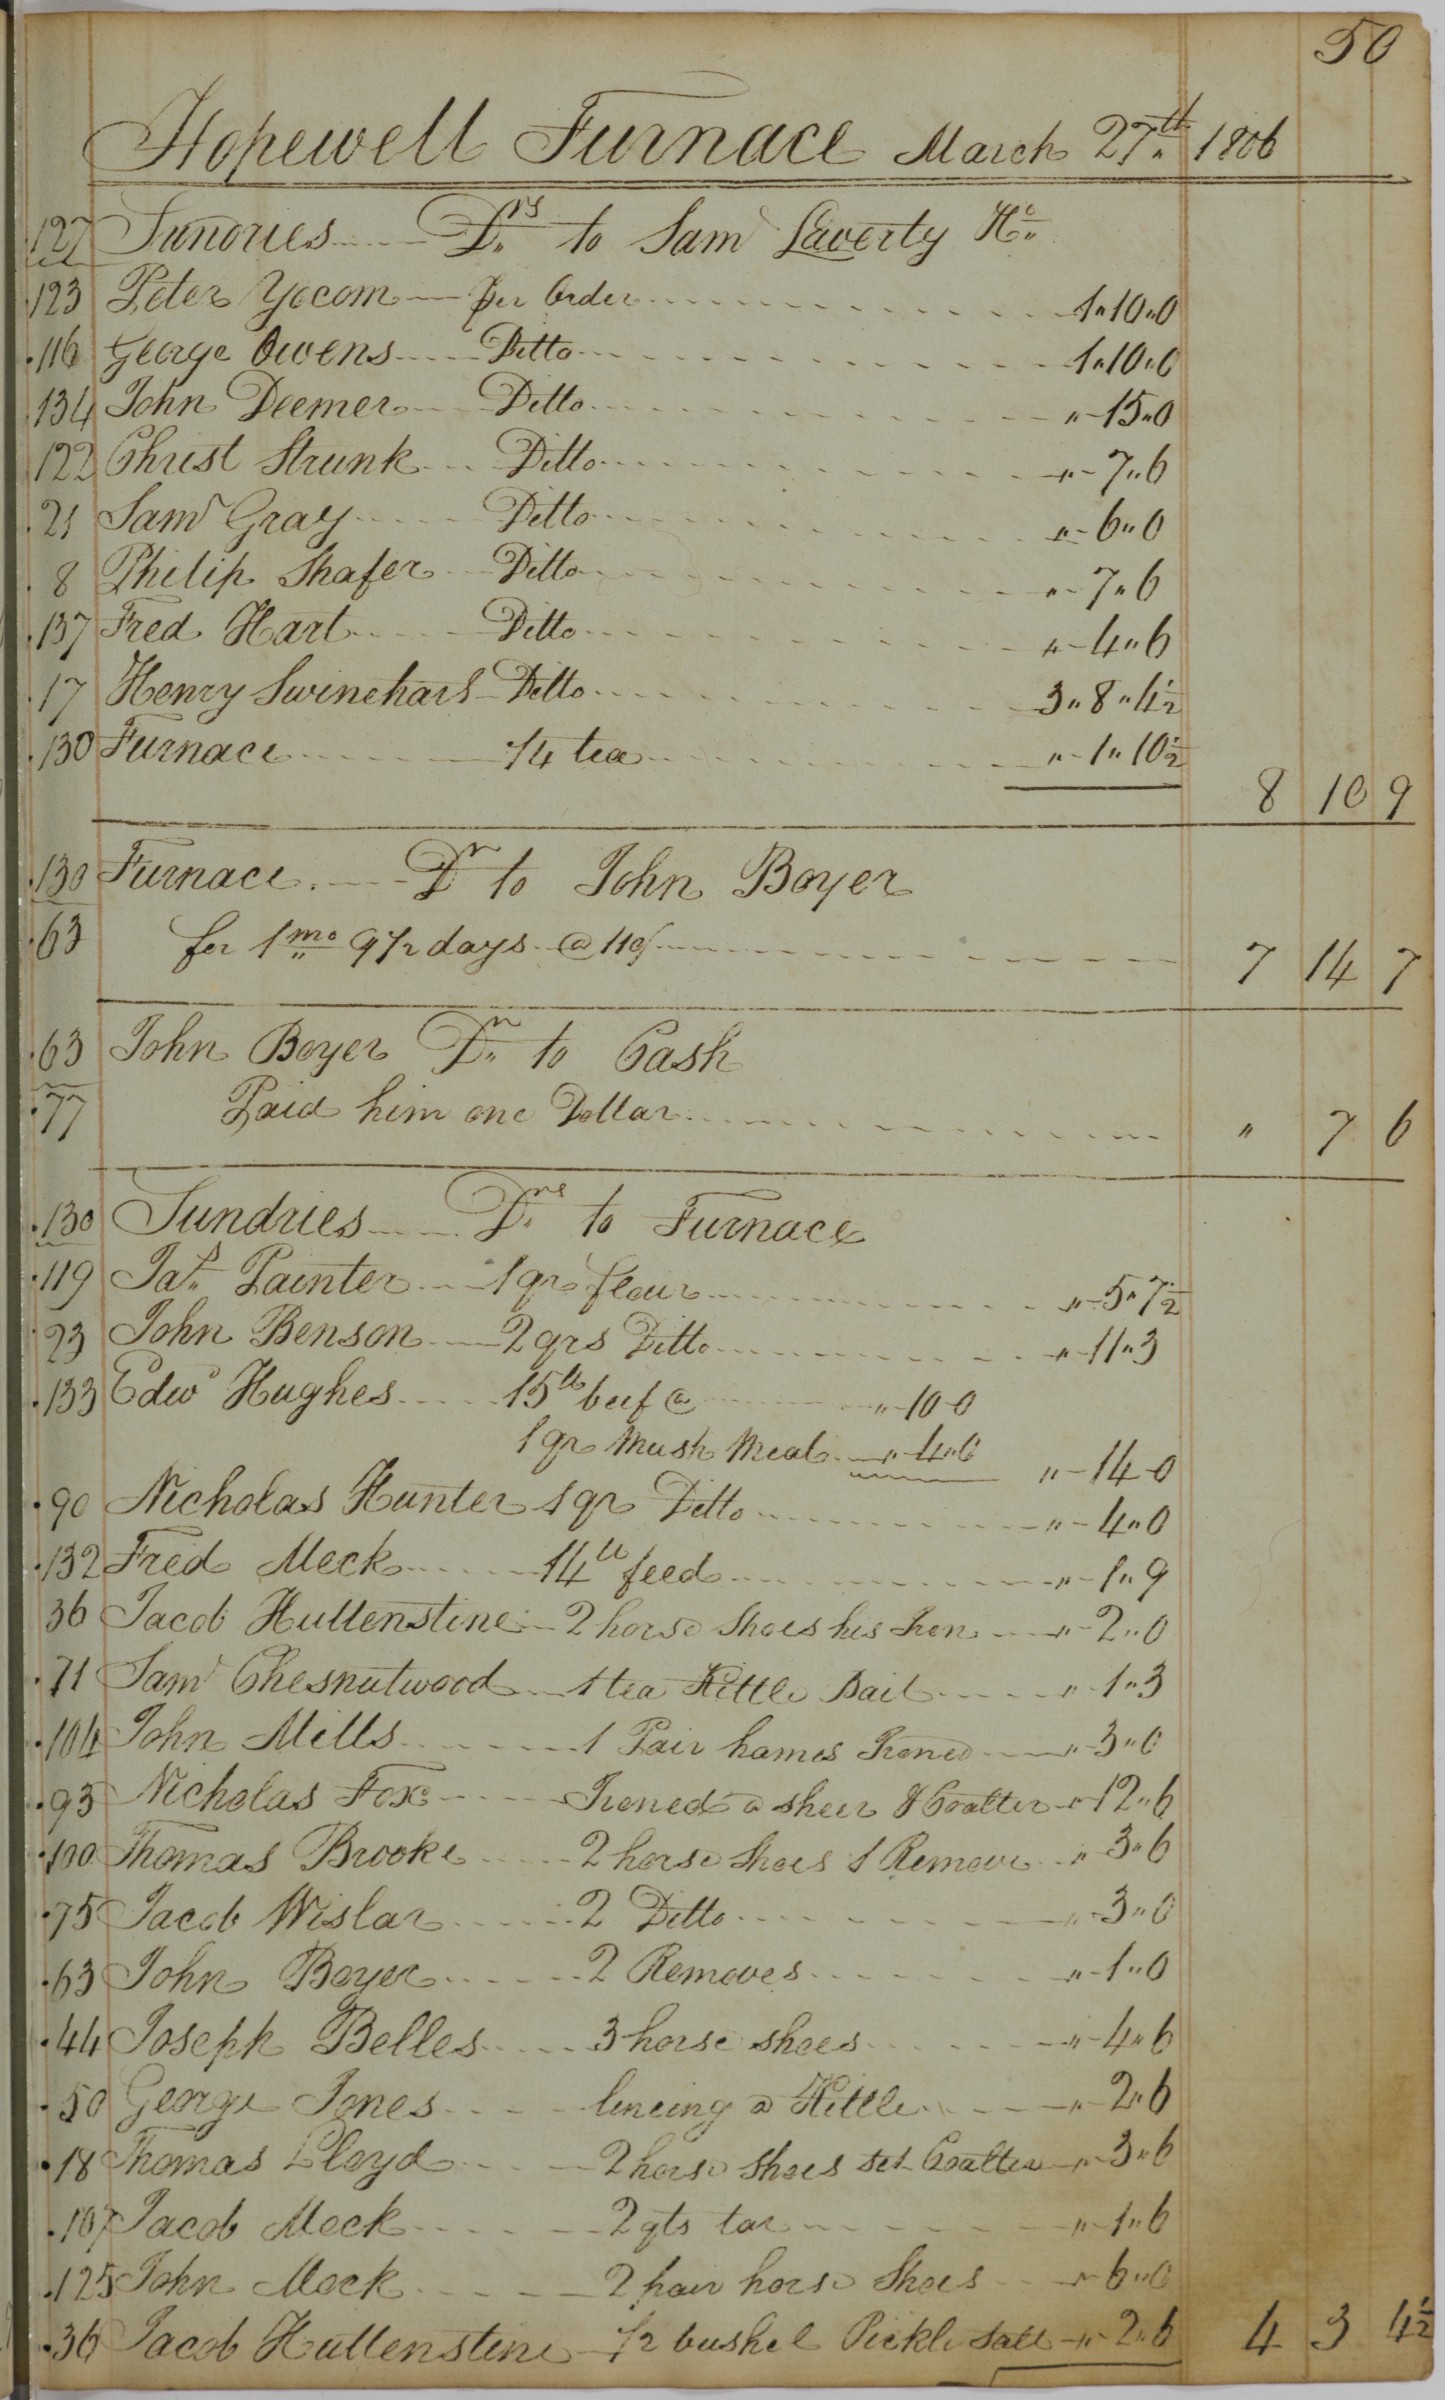 50
Hopewell Furnace March 27th 1806
127 Sundries Drs to Saml Laverty
123 Peter Yocom per Order 1"10"0
116 George Owens Ditto 1"10"0
134 John Deemer Ditto "15"0
122 Christ Strunk Ditto "7"6
21 Saml Gray Ditto "6"0
8 Philip Shafer Ditto "7"6
137 Fred Hart Ditto "4"6
17 Henry Swinehart Ditto 3"8"4½
130 Furnace 1/4 tea "1"10½
8 10 9
130 Furnace Dr to John Boyer
63 for 1mo 9½ days @ 110/ 7 14 7
63 John Boyer Dr to Cash
77 Paid him one Dollar " 7 6
130 Sundries Drs to Furnace
119 Jas Painter 1 qr flour "5"7½
23 John Benson 2 qrs Ditto "11"3
133 Edwd Hughes 15lb beef @ "10-0
1 qr Mush Meal "4"0 "14-0
90 Nicholas Hunter 1 qr Ditto "4"0
132 Fred Meck 14lb feed "1"9
36 Jacob Huttenstine 2 horse Shoes his Iron "2"0
71 Saml Chesnutwood 1 tea Kettle Bail "1"3
104 John Mills 1 Pair hames Ironed "3"0
93 Nicholas Fox Ironed a sheer & Coalter "12"6
100 Thomas Brooke 2 horse Shoes 1 Remove "3"6
75 Jacob Wislar 2 Ditto "3"0
63 John Boyer 2 Removes "1"0
44 Joseph Belles 3 horse shoes "4"6
50 George Jones a Kettle "2"6
18 Thomas Lloyd 2 horse Shoes set Coalter "3"6
107 Jacob Meck 2 qts tar "1"6
125 John Meck 2 pair horse Shoes "6"0
36 Jacob Huttenstine ½ bushel Pickle Salt "2"6 4 3 4½